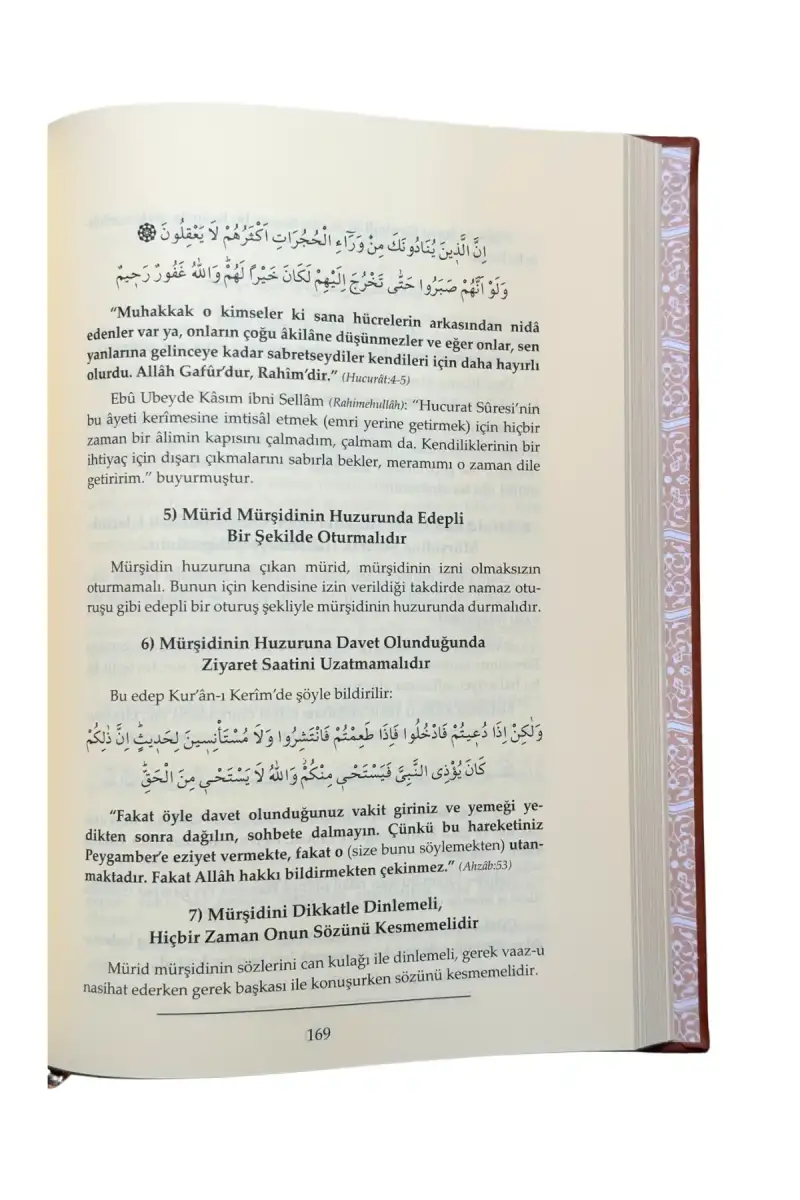 اِنَّ الَّذٖينَ يُنَادُونَكَ مِنْ وَرَٓاءِ الْحُجُرَاتِ اَكْثَرُهُمْ لَا يَعْقِلُونَ ۞
وَلَوْ اَنَّهُمْ صَبَرُوا حَتّٰى تَخْرُجَ اِلَيْهِمْ لَكَانَ خَيْرًا لَهُمْ وَاللّٰهُ غَفُورٌ رَحٖيمٌ
“Muhakkak o kimseler ki sana hücrelerin arkasından nidâ
edenler var ya, onların çoğu âkilâne düşünmezler ve eğer onlar, sen
yanlarına gelinceye kadar sabretseydiler kendileri için daha hayırlı
olurdu. Allâh Gafûr’dur, Rahîm’dir.” (Hucurât:4-5)
Ebû Ubeyde Kâsım ibni Sellâm (Rahimehullâh): “Hucurat Sûresi’nin
bu âyeti kerîmesine imtisâl etmek (emri yerine getirmek) için hiçbir
zaman bir âlimin kapısını çalmadım, çalmam da. Kendiliklerinin bir
ihtiyaç için dışarı çıkmalarını sabırla bekler, meramımı o zaman dile
getiririm.” buyurmuştur.
5) Mürid Mürşidinin Huzurunda Edepli
Bir Şekilde Oturmalıdır
Mürşidin huzuruna çıkan mürid, mürşidinin izni olmaksızın
oturmamalı. Bunun için kendisine izin verildiği takdirde namaz otu-
ruşu gibi edepli bir oturuş şekliyle mürşidinin huzurunda durmalıdır.
6) Mürşidinin Huzuruna Davet Olunduğunda
Ziyaret Saatini Uzatmamalıdır
Bu edep Kur’ân-ı Kerîm’de şöyle bildirilir:
وَلٰكِنْ اِذَا دُعٖيتُمْ فَادْخُلُوا فَاِذَا طَعِمْتُمْ فَانْتَشِرُوا وَلَا مُسْتَأْنِسٖينَ لِحَدٖيثٍ اِنَّ ذٰلِكُمْ
كَانَ يُؤْذِى النَّبِىَّ فَيَسْتَحْيٖ مِنْكُمْ وَاللّٰهُ لَا يَسْتَحْيٖ مِنَ الْحَقِّ
“Fakat öyle davet olunduğunuz vakit giriniz ve yemeği ye-
dikten sonra dağılın, sohbete dalmayın. Çünkü bu hareketiniz
Peygamber’e eziyet vermekte, fakat o (size bunu söylemekten) utan-
maktadır. Fakat Allâh hakkı bildirmekten çekinmez.” (Ahzâb:53)
7) Mürşidini Dikkatle Dinlemeli,
Hiçbir Zaman Onun Sözünü Kesmemelidir
Mürid mürşidinin sözlerini can kulağı ile dinlemeli, gerek vaaz-u
nasihat ederken gerek başkası ile konuşurken sözünü kesmemelidir.
169